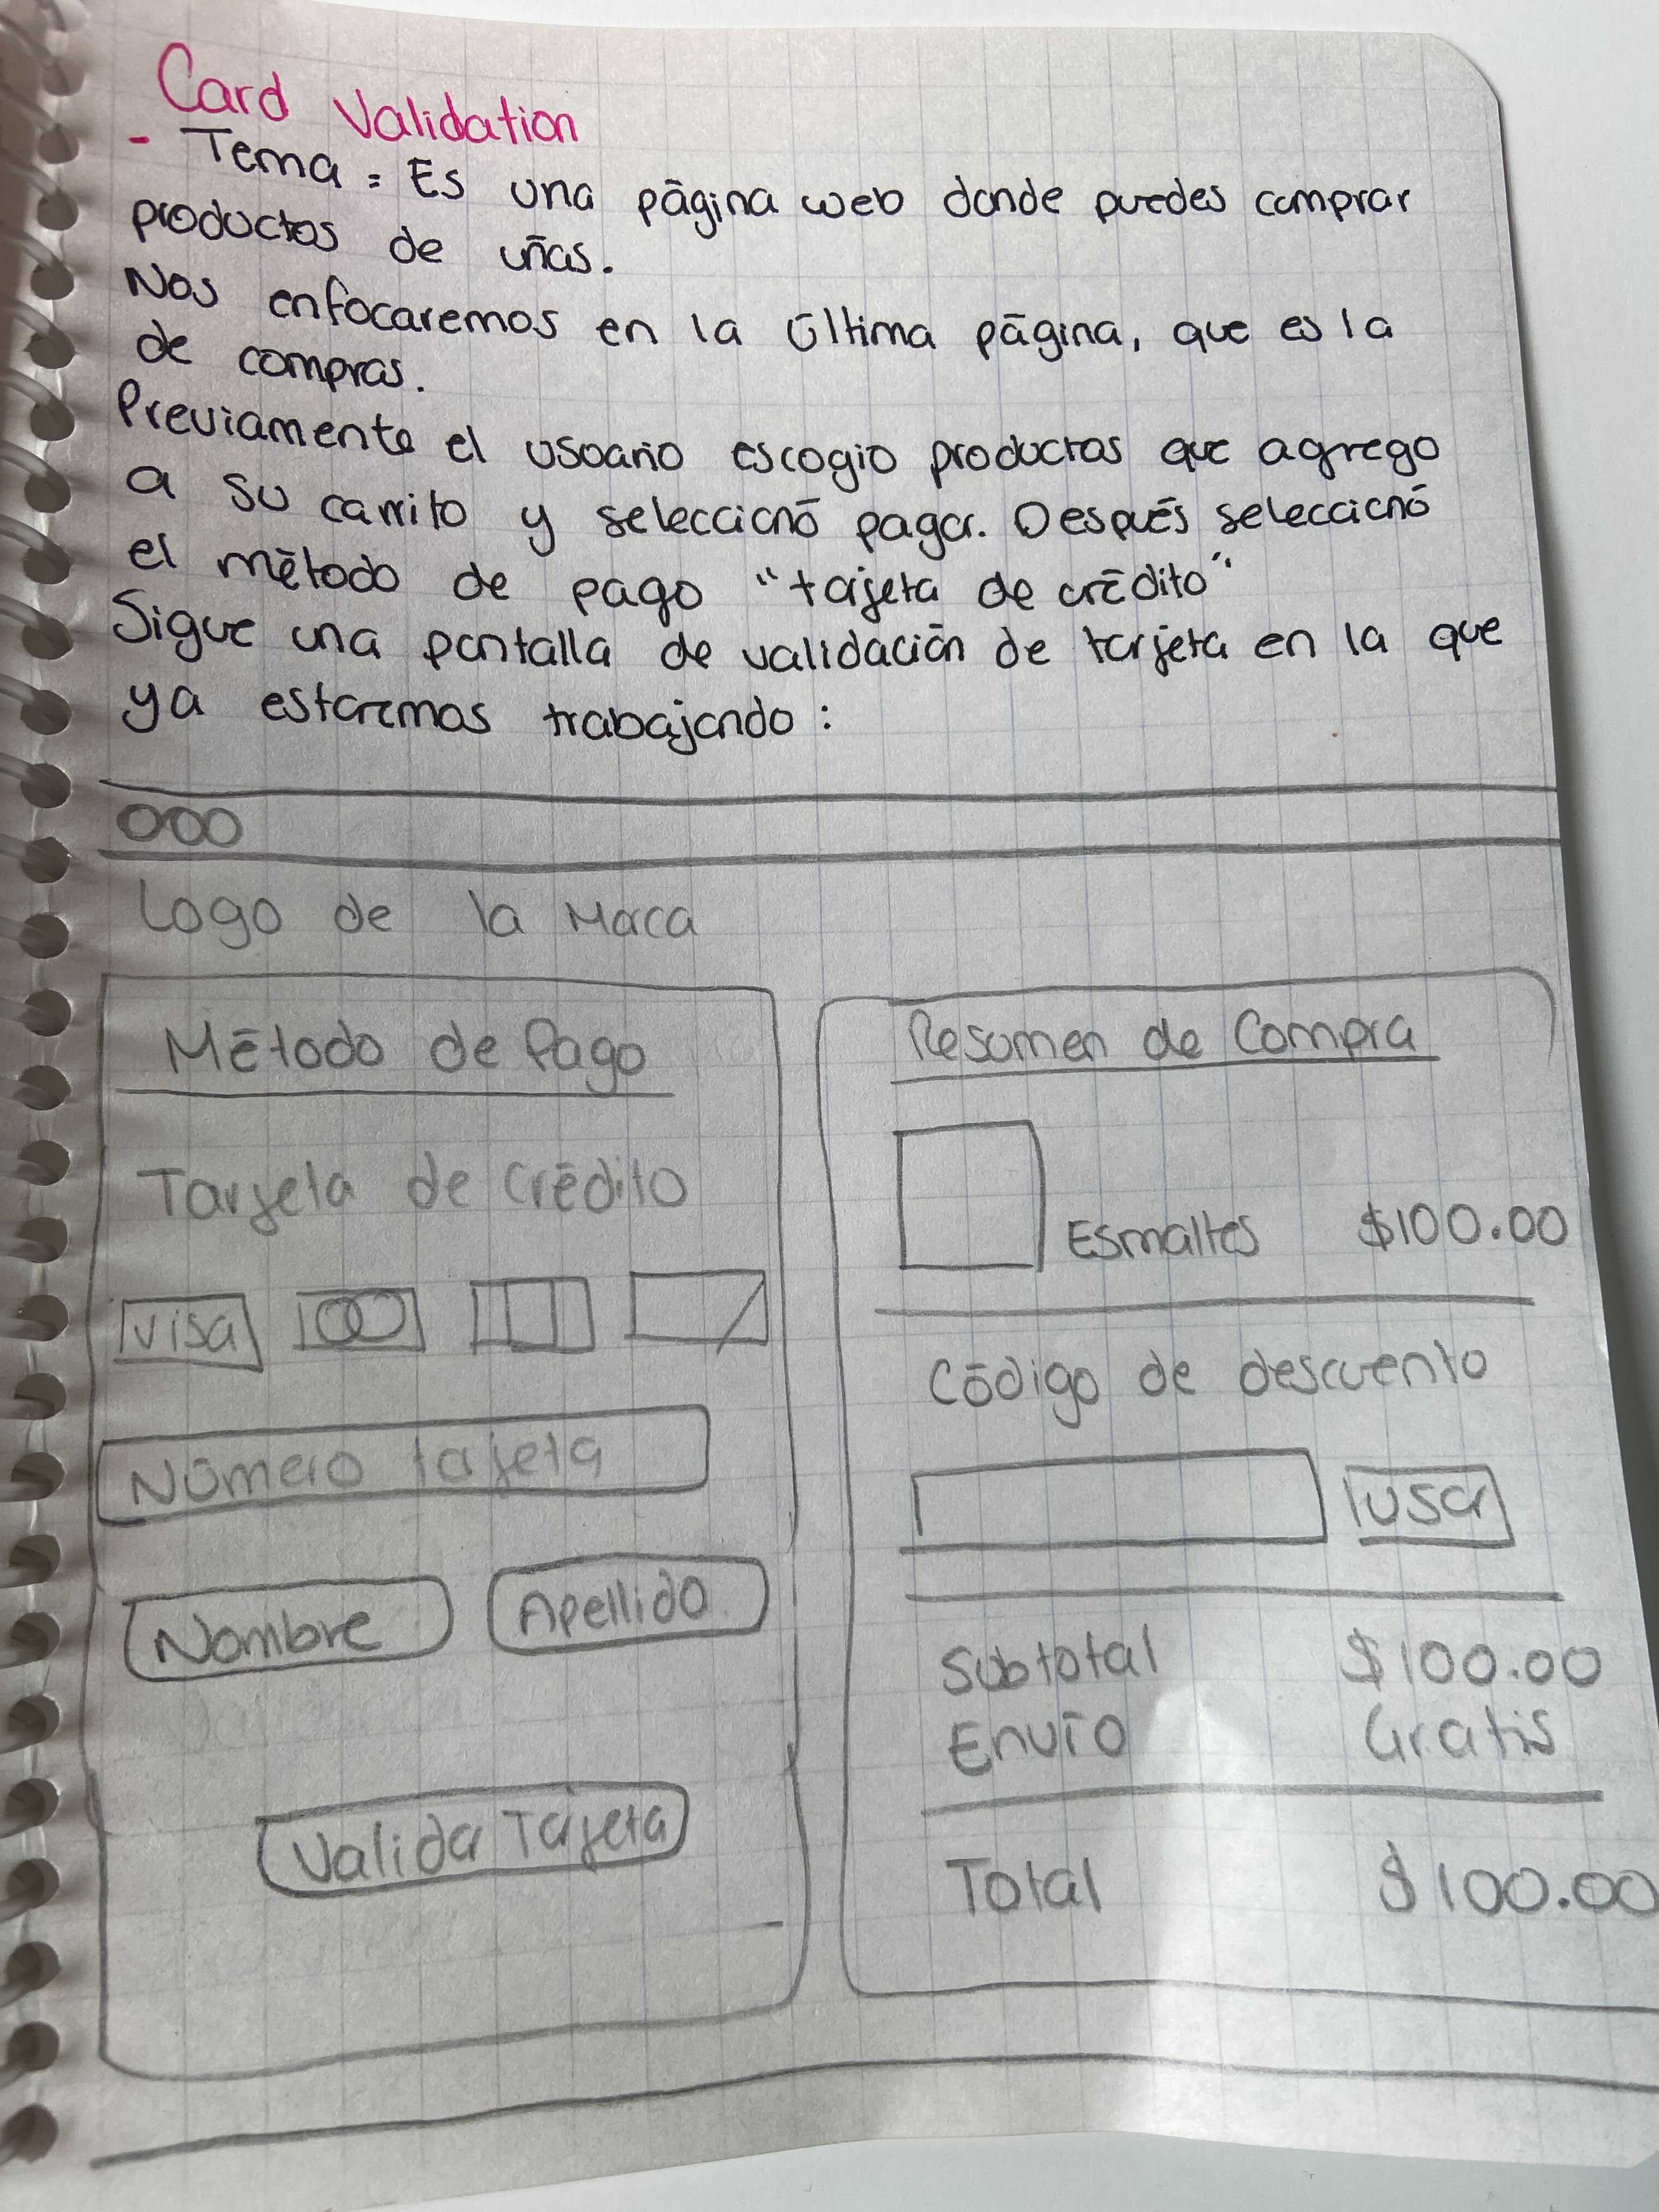 Card Validation
- Tema = Es una página web donde puedes comprar
productos de uñas.
Nos enfocaremos en la última página, que es la
de compras.
Previamente el usuario escogio productos que agrego
a su carrito y seleccionó pagar. Después seleccionó
el método de pago "tarjeta de crédito"
Sigue una pantalla de validación de tarjeta en la que
ya estaremos trabajando:
Logo de la Marca
Método de Pago
Tarjeta de Crédito
visa
Número tarjeta
Nombre Apellido
Validar Tarjeta
Resumen de Compra
Esmaltes $100.00
Código de descuento
usar
Subtotal $100.00
Envío Gratis
Total $100.00